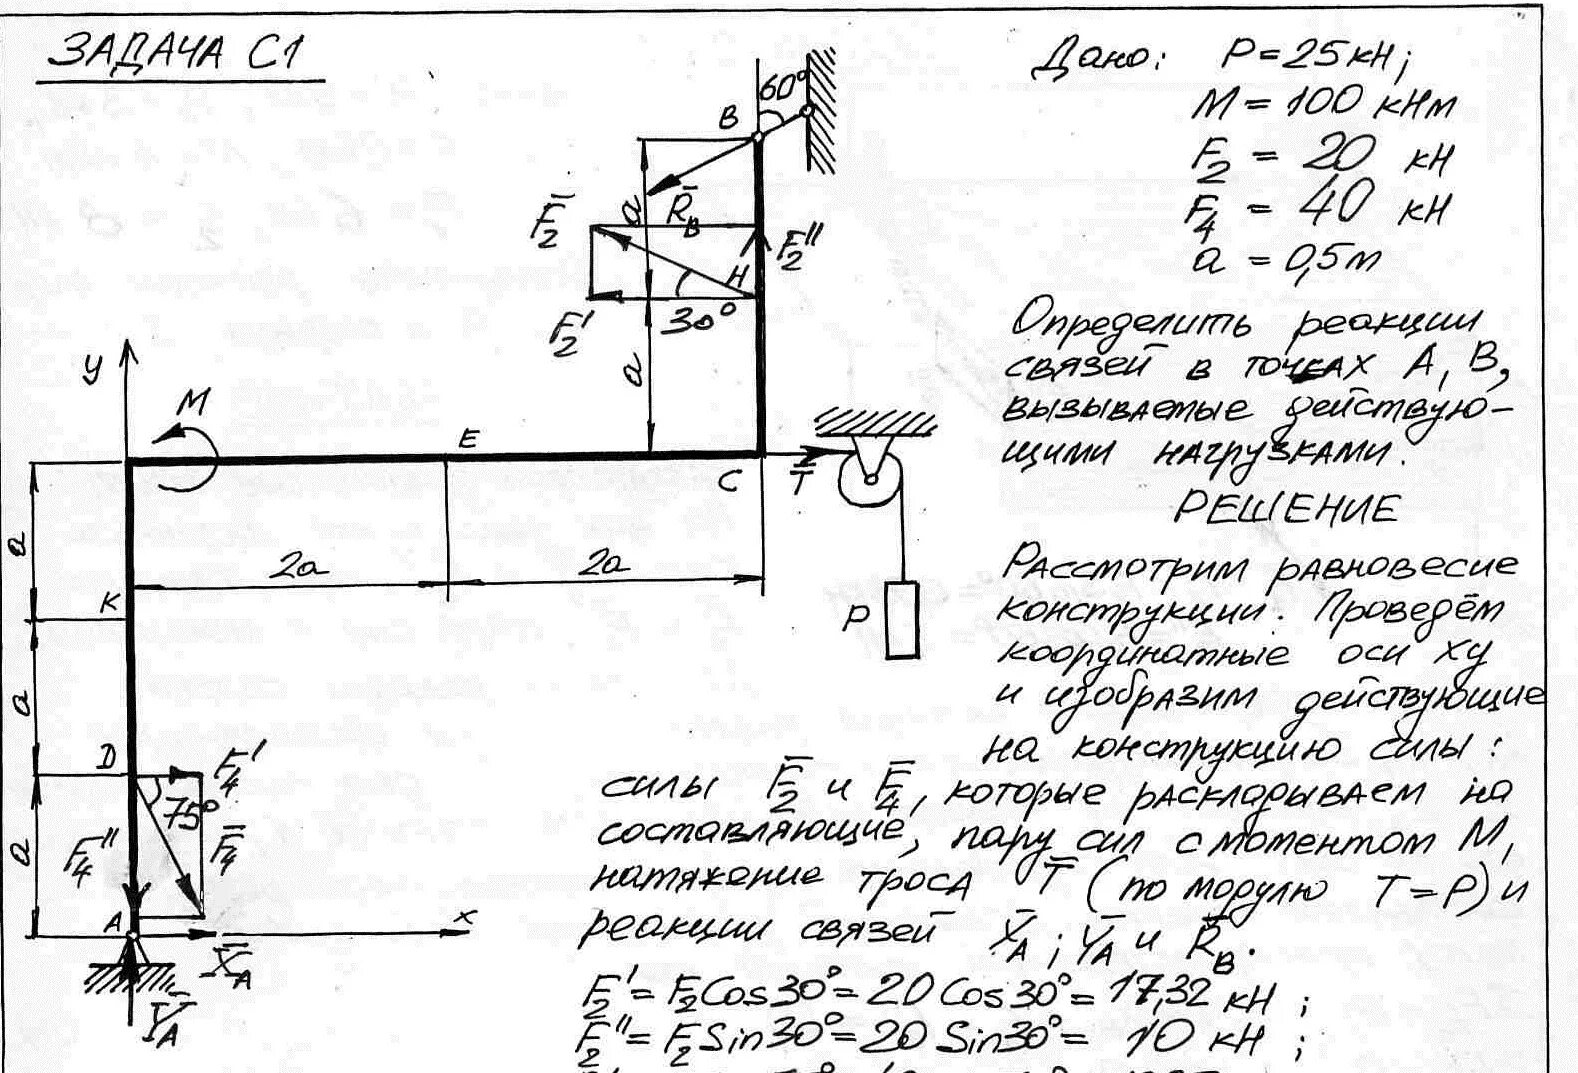 ЗАДАЧА С1
Дано: P = 25 кН;
M = 100 кНм
F2 = 20 кН
F4 = 40 кН
a = 0,5 м
Определить реакции
связей в точках А, В,
вызываемые действую-
щими нагрузками.
РЕШЕНИЕ
Рассмотрим равновесие
конструкции. Проведём
координатные оси xy
и изобразим действующие
на конструкцию силы:
силы F̄2 и F̄4, которые раскладываем на
составляющие, пару сил с моментом М,
натяжение троса T̄ (по модулю T=P) и
реакции связей X̄A; ȲA и R̄B.
F2' = F2 Cos30° = 20 Cos30° = 17,32 кН;
F2'' = F2 Sin30° = 20 Sin30° = 10 кН;
60°
B
a
R̄B
F̄2
F2''
H
F2'
30°
a
y
M
E
C
T̄
a
2a
2a
K
P
a
D
F4'
75°
F4''
F̄4
a
A
X̄A
x
ȲA